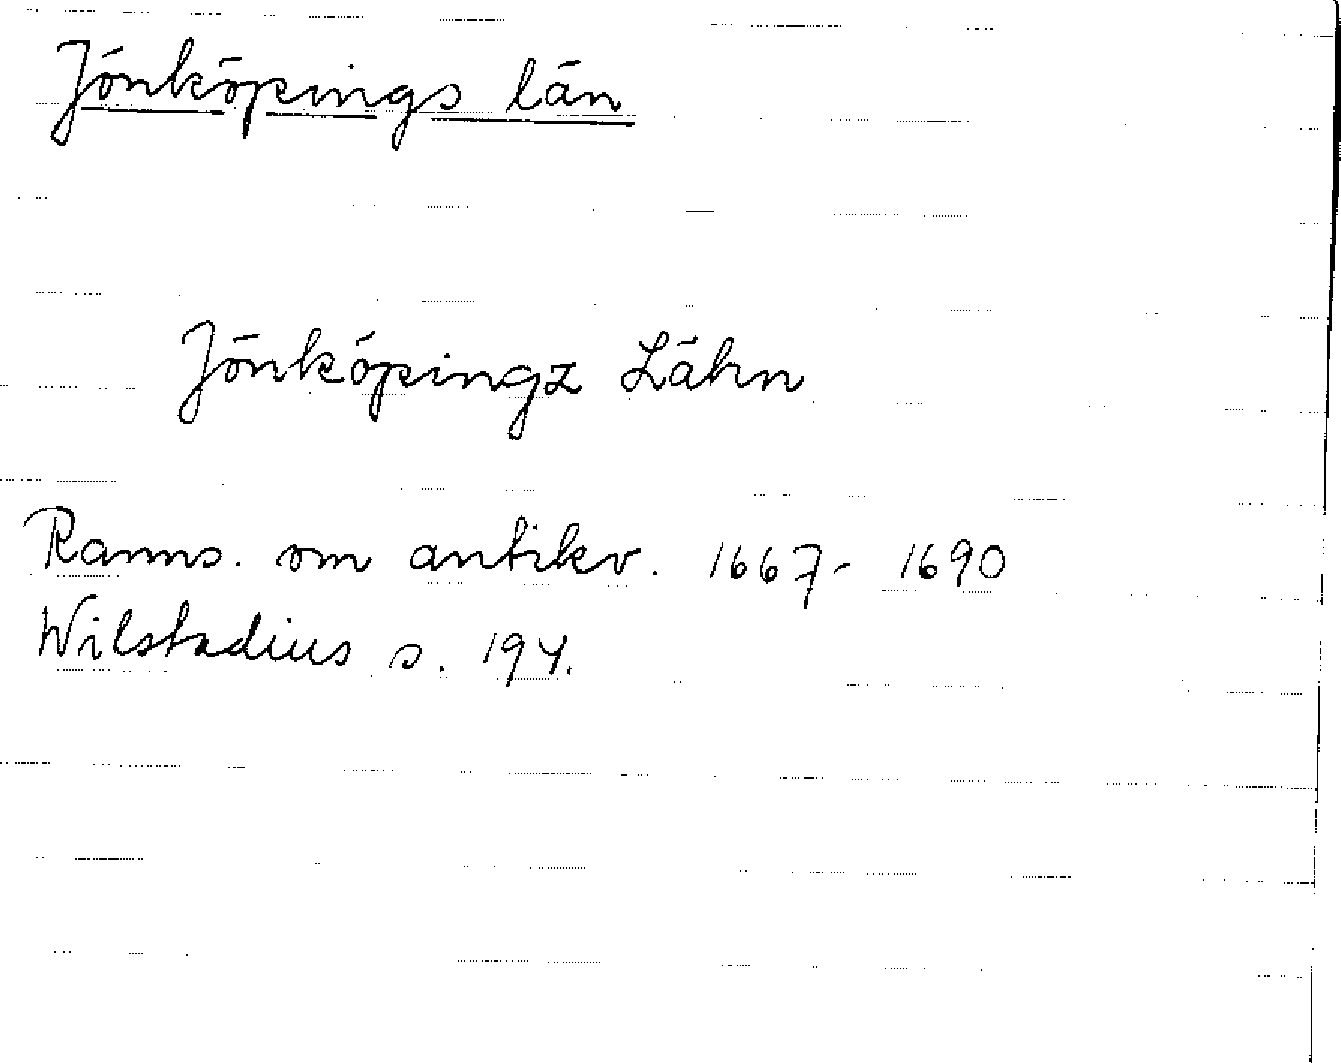 Jönköpings län
Jönköpingz Lähn
Ranns. om antikv. 1667- 1690
Wilstadius s. 194.